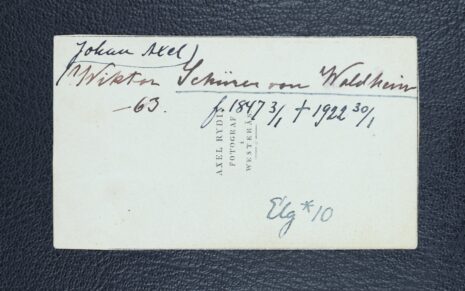 Johan Axel)
(Wiktor Schürer von Waldheim
-63. f. 1847 3/1 † 1922 30/1
AXEL RYDI
FOTOGRAF
I
WESTERÅS
Elg * 10